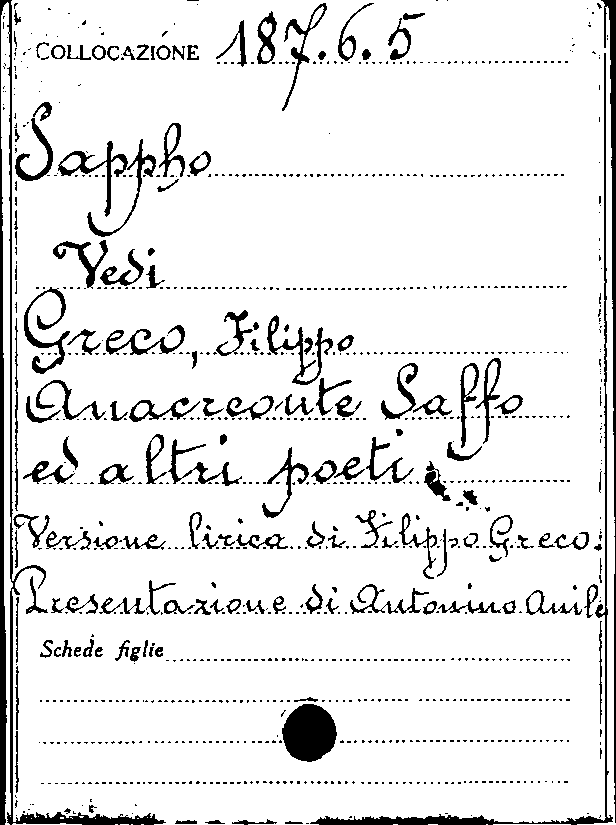 COLLOCAZIONE 187.6.5
Sappho
Vedi
Greco, Filippo
Anacreonte Saffo
ed altri poeti
Versione lirica di Filippo Greco.
Presentazione di Antonino Anile
Schede figlie